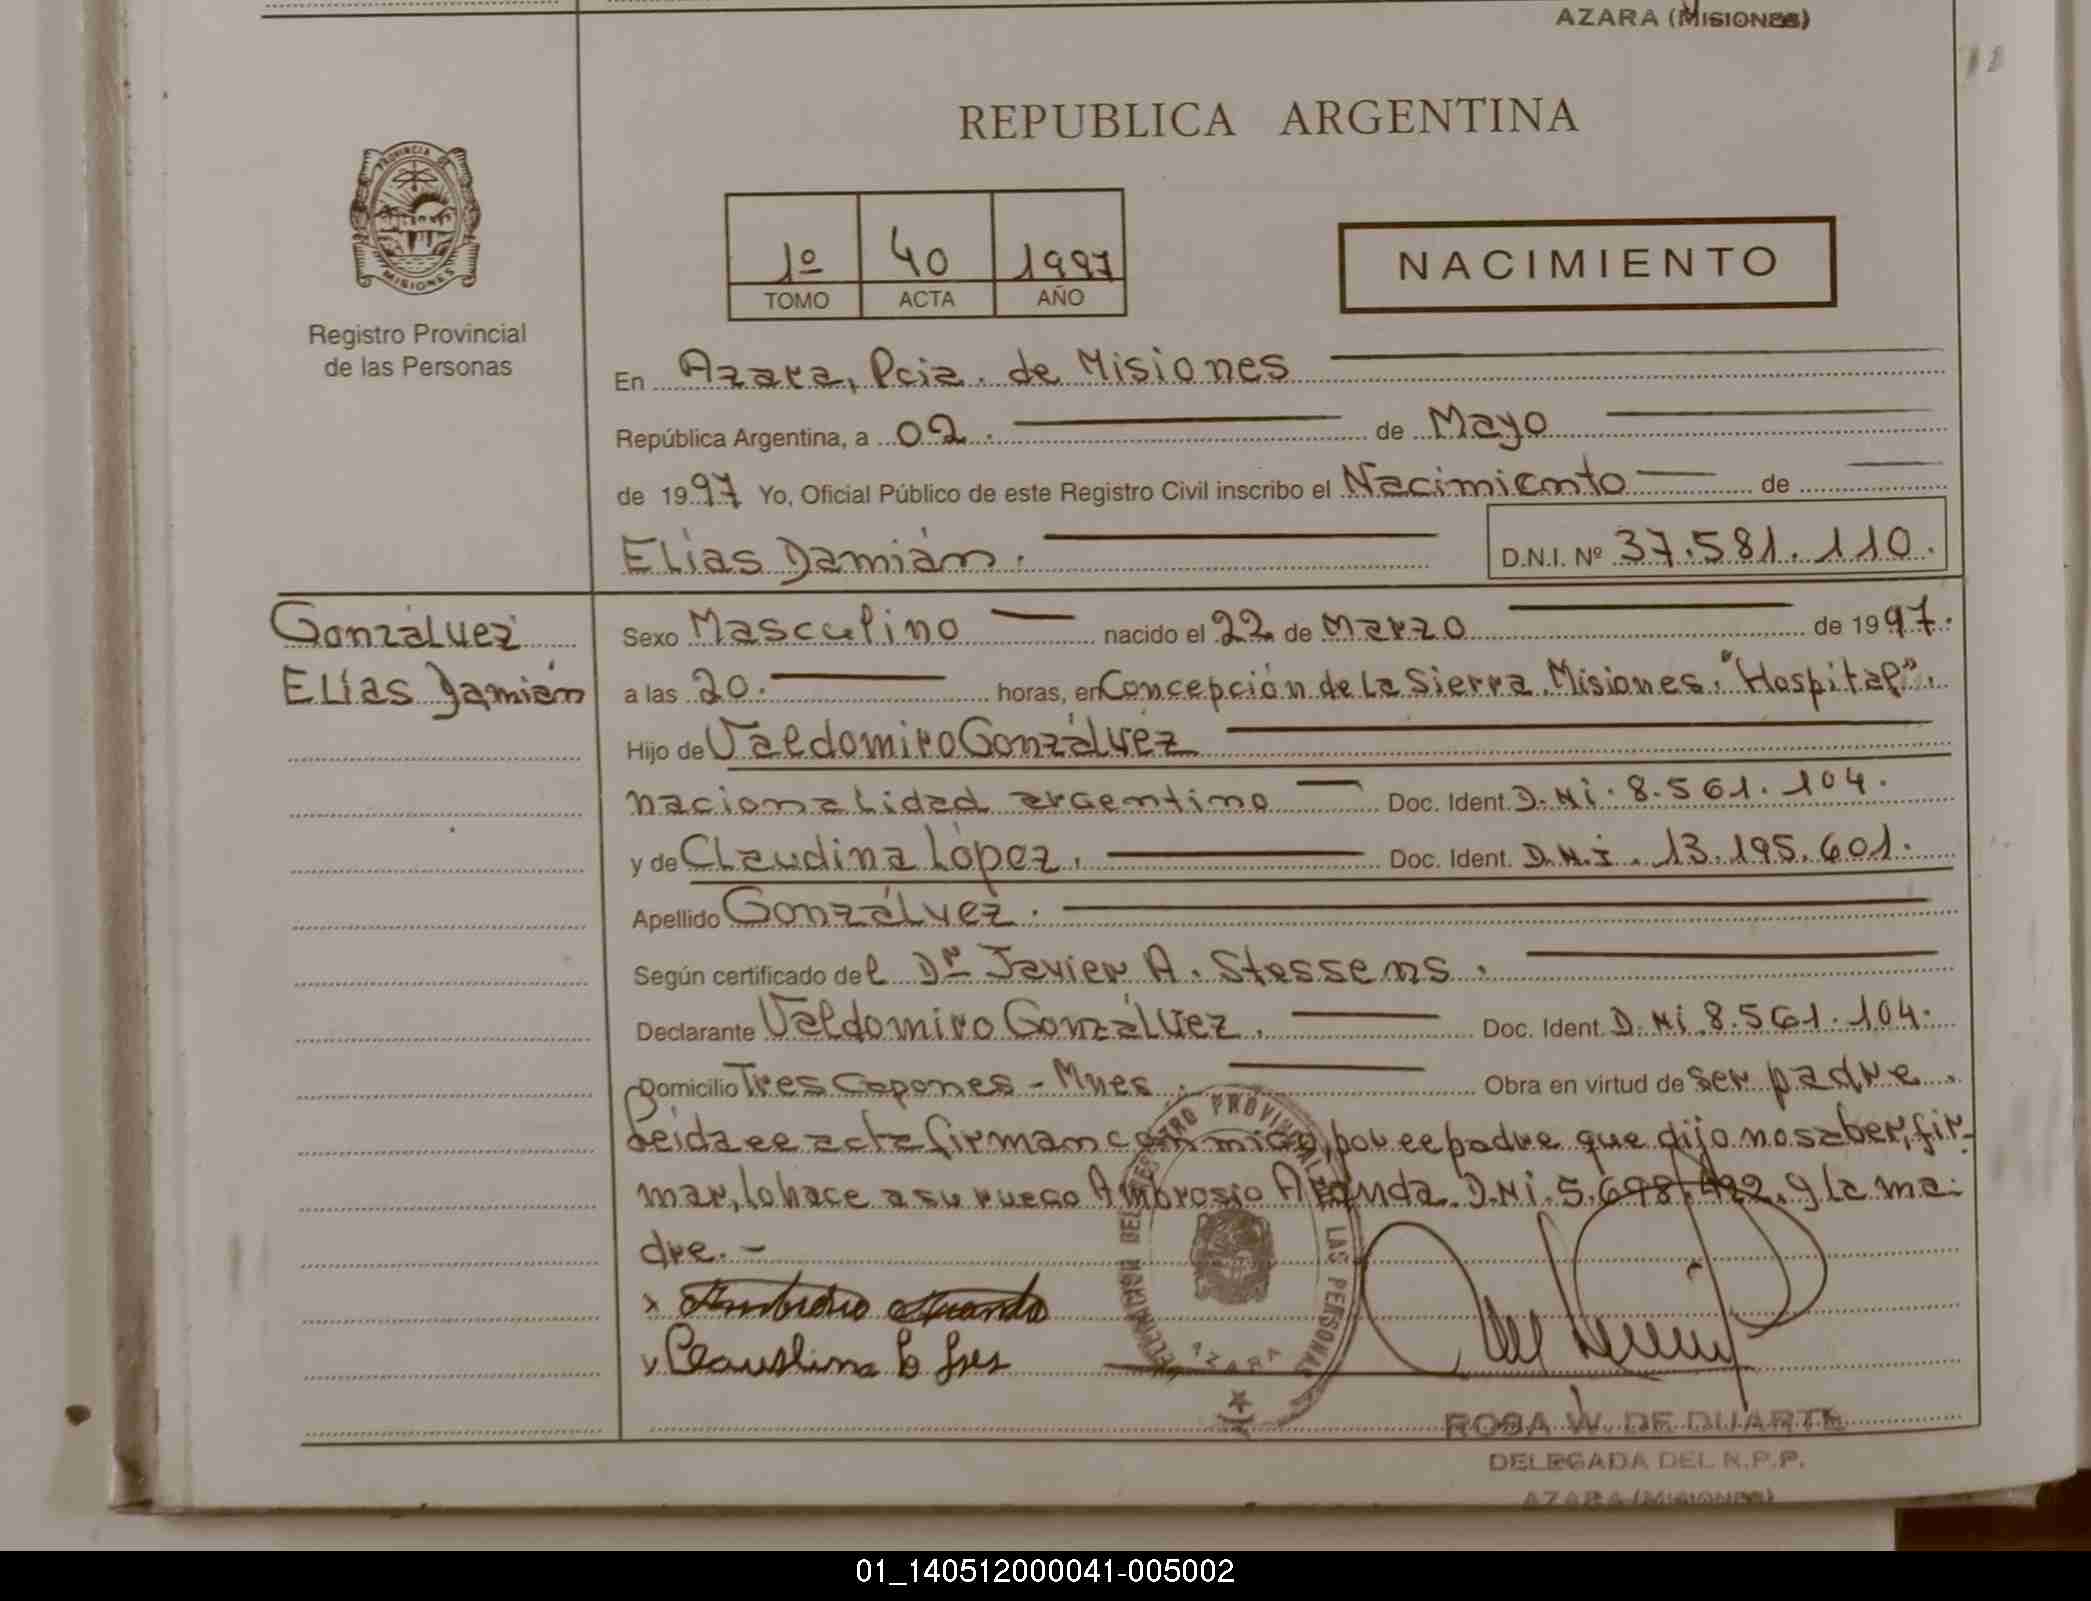 AZARA (MISIONES)
REPUBLICA ARGENTINA
PROVINCIA DE MISIONES
1º 40 1997
TOMO ACTA AÑO
NACIMIENTO
Registro Provincial
de las Personas
En Azara, Pcia. de Misiones
República Argentina, a 02. de Mayo
de 1997 Yo, Oficial Público de este Registro Civil inscribo el Nacimiento de
Elías Damián. D.N.I. Nº 37.581.110.
Gonzálvez
Elías Damián
Sexo Masculino nacido el 22 de Marzo de 1997.
a las 20. horas, en Concepción de La Sierra. Misiones. "Hospital".
Hijo de Valdomiro Gonzálvez
nacionalidad argentino Doc. Ident. D.Ni. 8.561.104.
y de Claudina López. Doc. Ident. D.N.i. 13.195.601.
Apellido Gonzálvez.
Según certificado del Dr Javier A. Stessens.
Declarante Valdomiro Gonzálvez. Doc. Ident. D.Ni. 8.561.104.
Domicilio Tres Capones - Mnes. Obra en virtud de ser padre.
Leida el acta firman conmigo, por el padre que dijo no saber, fir-
mar, lo hace a su ruego Ambrosio Aranda. D.Ni. 5.698.422. y la ma-
dre. -
x Ambrosio Aranda
DELEGACION DEL REGISTRO PROVINCIAL DE LAS PERSONAS
AZARA
ROSA W. DE DUARTE
DELEGADA DEL R.P.P.
AZARA (MISIONES)
01_140512000041-005002